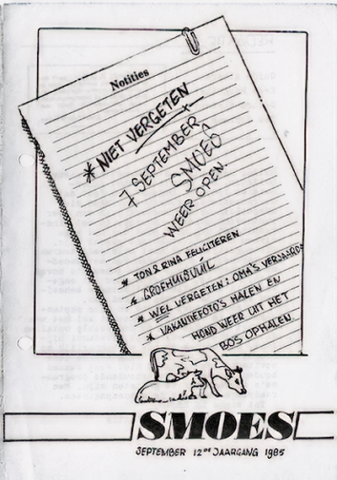 Notities
* NIET VERGETEN
7 SEPTEMBER
SMOES
WEER OPEN.
* TON & RINA FELICITEREN
* GROFHUISVUIL
* WEL VERGETEN: OMA'S VERJAARD
* VAKANTIEFOTO'S HALEN EN
HOND WEER UIT HET
BOS OPHALEN
SMOES
SEPTEMBER 12DE JAARGANG 1985